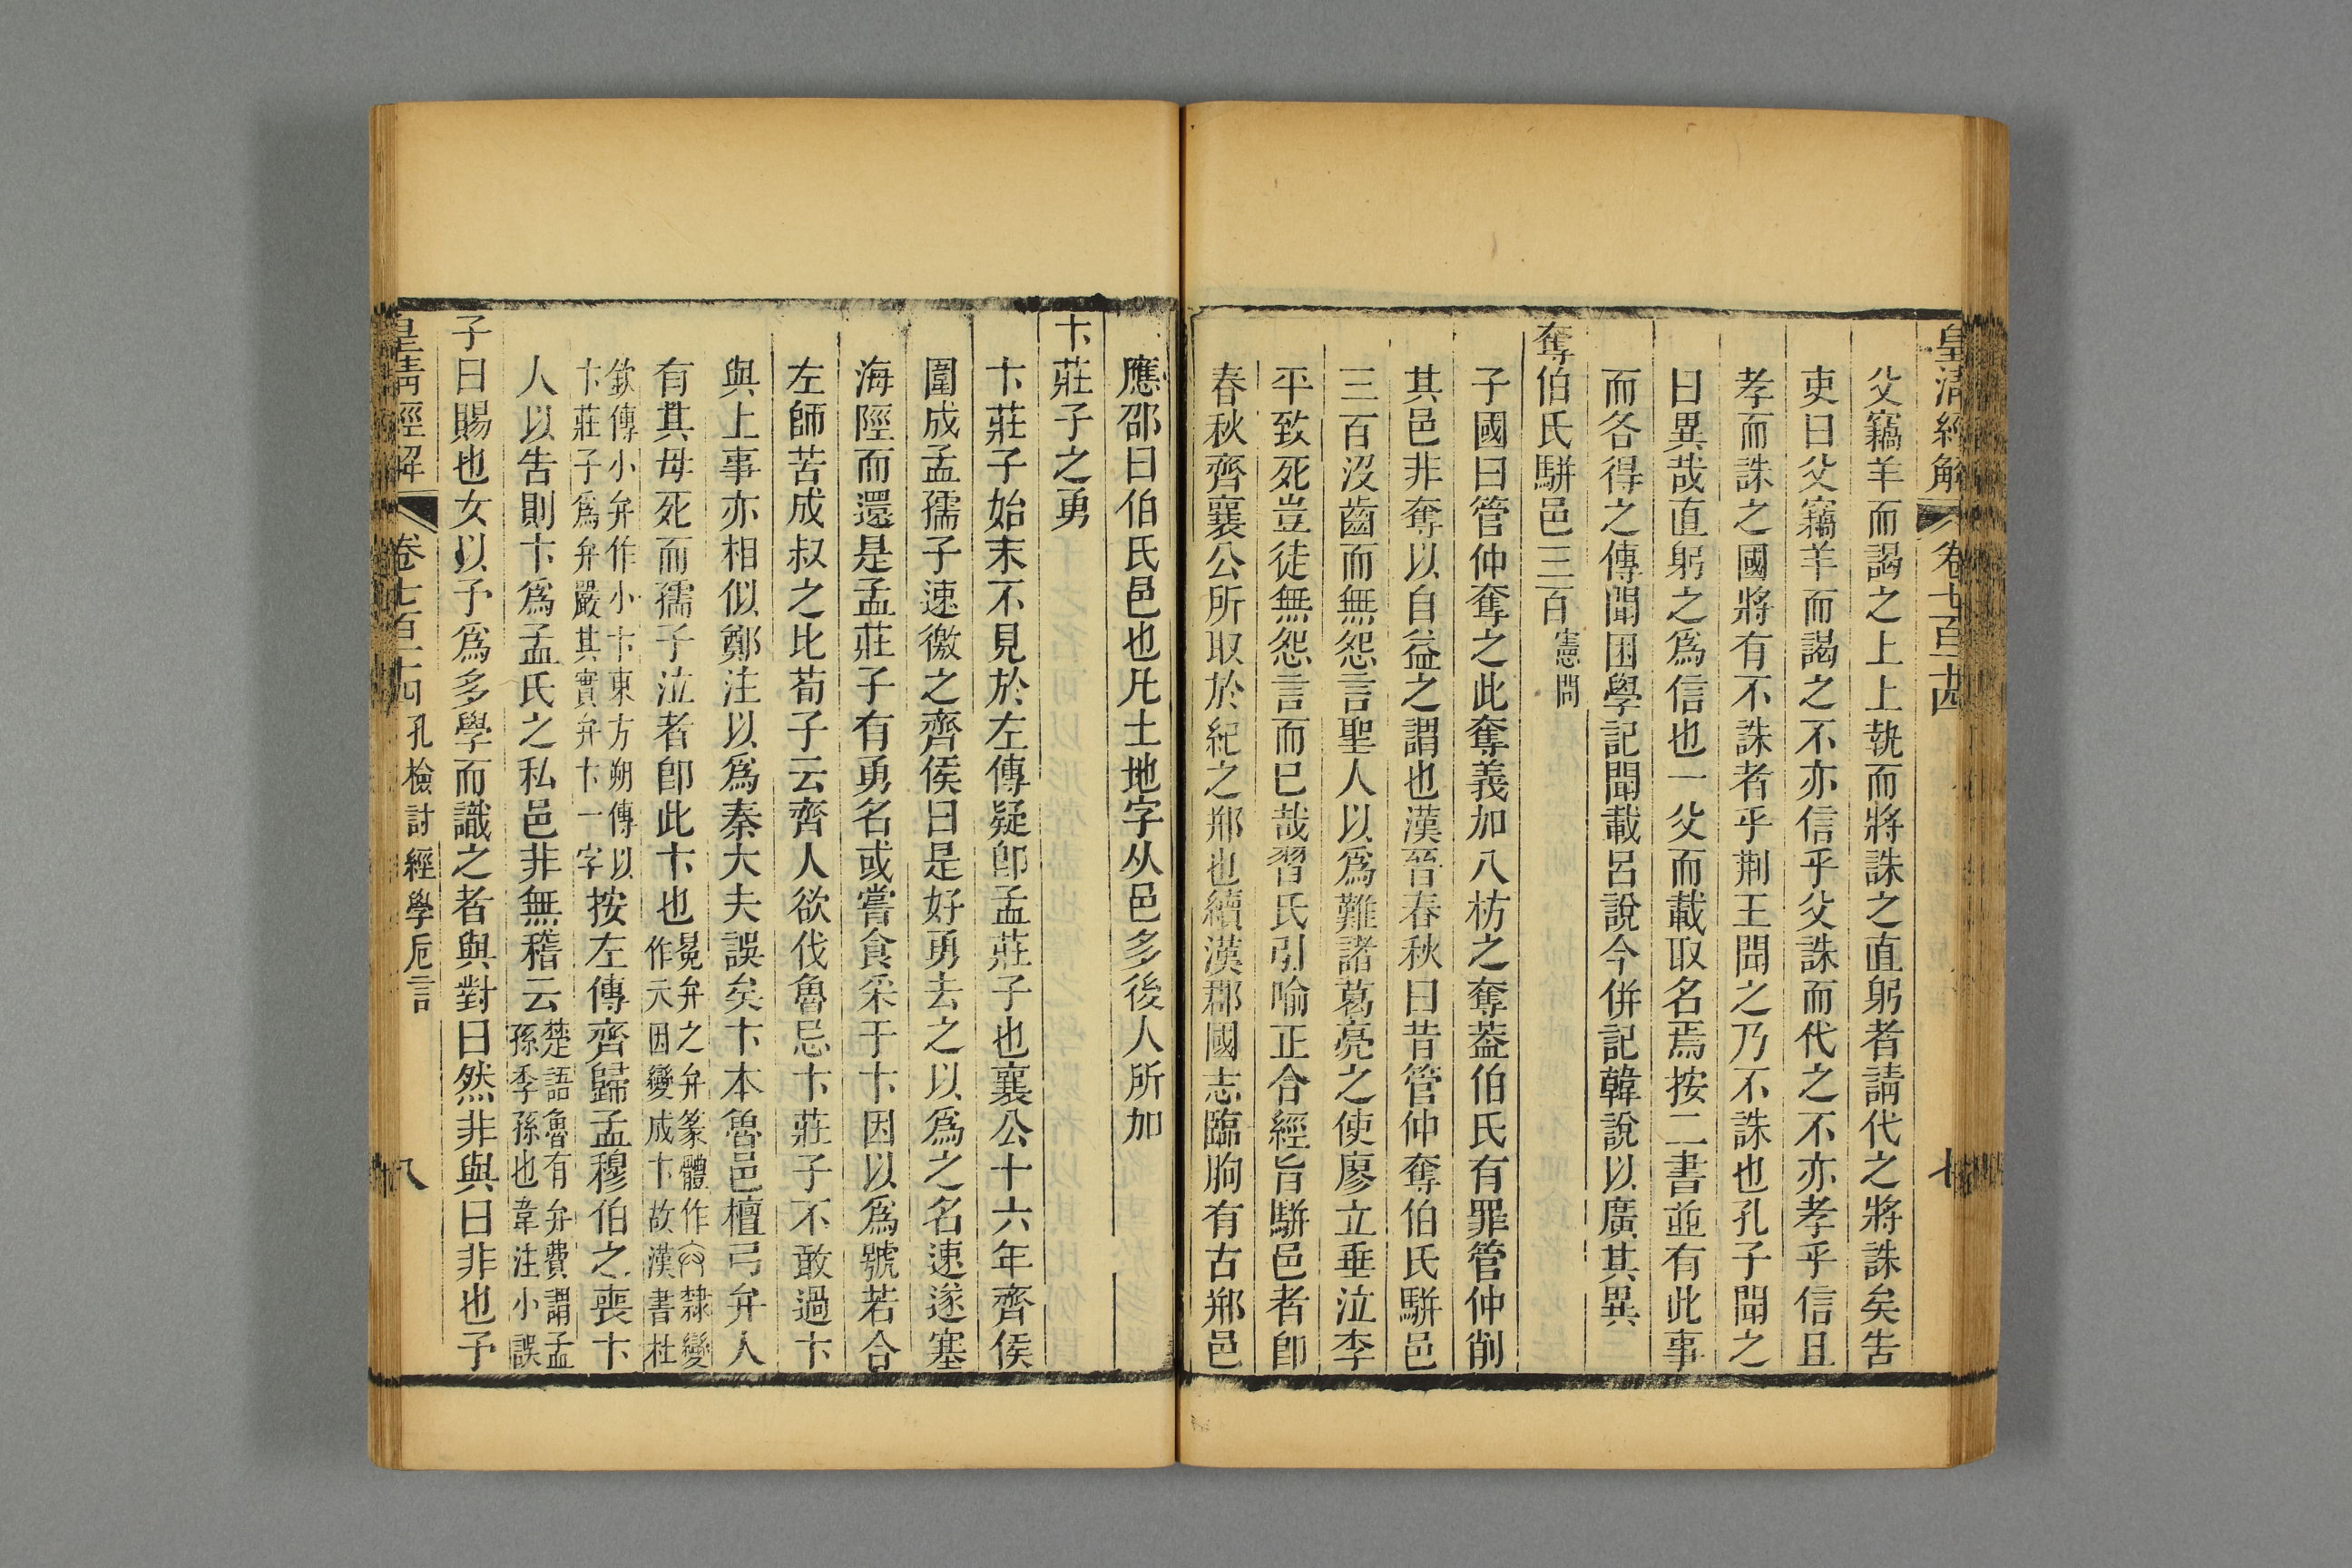 皇清經解 卷七百十四 七
父竊羊而謁之上上執而將誅之直躬者請代之將誅矣吿
吏曰父竊羊而謁之不亦信乎父誅而代之不亦孝乎信且
孝而誅之國將有不誅者乎荆王聞之乃不誅也孔子聞之
曰異哉直躬之爲信也一父而載取名焉按二書並有此事
而各得之傳聞困學記聞載呂說今併記韓說以廣其異
奪伯氏騈邑三百憲問
子國曰管仲奪之此奪義加八枋之奪葢伯氏有罪管仲削
其邑非奪以自益之謂也漢晉春秋曰昔管仲奪伯氏騈邑
三百沒齒而無怨言聖人以爲難諸葛亮之使廖立垂泣李
平致死豈徒無怨言而巳哉習氏引喻正合經旨騈邑者卽
春秋齊襄公所取於紀之郱也續漢郡國志臨朐有古郱邑
應邵曰伯氏邑也凡土地字从邑多後人所加
卞莊子之勇
卞莊子始末不見於左傳疑卽孟莊子也襄公十六年齊侯
圍成孟孺子速徼之齊侯曰是好勇去之以爲之名速遂塞
海陘而還是孟莊子有勇名或嘗食采于卞因以爲號若合
左師苦成叔之比荀子云齊人欲伐魯忌卞莊子不敢過卞
與上事亦相似鄭注以爲秦大夫誤矣卞本魯邑檀弓弁人
有其母死而孺子泣者卽此卞也冕弁之弁篆體作隸變
作元因變成卞故漢書杜
欽傳小弁作小卞東方朔傳以
卞莊子爲弁嚴其實弁卞一字按左傳齊歸孟穆伯之喪卞
人以吿則卞爲孟氏之私邑非無稽云楚語魯有弁費謂孟
孫季孫也韋注小誤
子曰賜也女以予爲多學而識之者與對曰然非與曰非也予
皇清經解 卷七百十四 孔檢討經學卮言 八